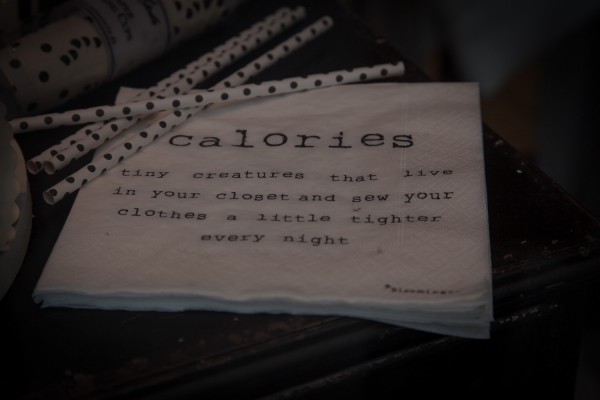 calories
tiny creatures that live
in your closet and sew your
clothes a little tighter
every night